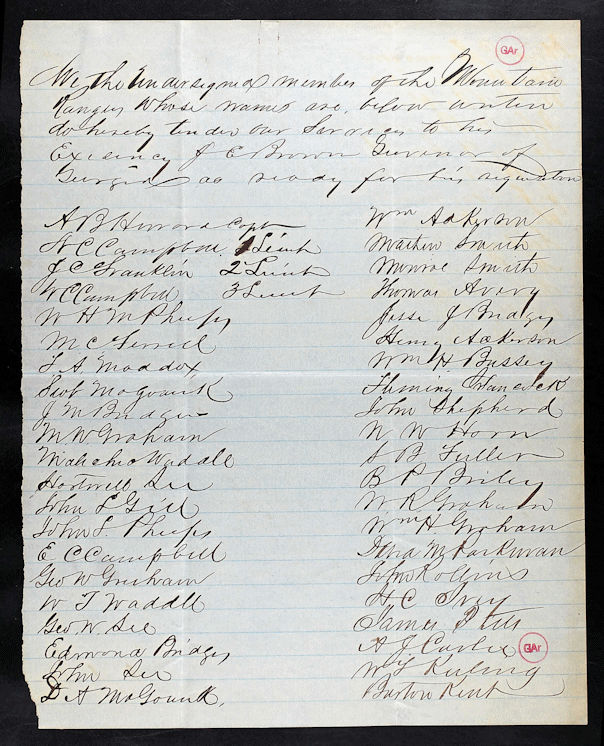 GAr
We, the undersigned member of the Mountain
Rangers whose names are below written
do hereby tender our Services to his
Exelency J E Brown Guvenor of
Georgia as ready for his requisition
A B Howard Capt
W C Campbell 1 Lieut
J C Franklin 2 Lieut
W C Campbell 3 Lieut
W H M Phelps
M C
L A Maddox
M
J M Bridges
M W Graham
Waddell
Hartwell Lee
John L Gill
John S. Phelps
E C Campbell
Geo W Graham
W T Waddle
Geo. W. Lee
Edmond Bridges
John Lee
D A McGouirk.
Wm Adkerson
Mathew Smith
Monroe Smith
Thomas Avery
Jesse J Bridges
Henry Adkerson
Wm H Bussey
Fleming
John Shepherd
N W Horn
S B Fuller
B P Briley
W R Graham
Wm H Graham
Ira M
John Rollins
H C Ivey
James
A J
W
Barton Kent
GAr